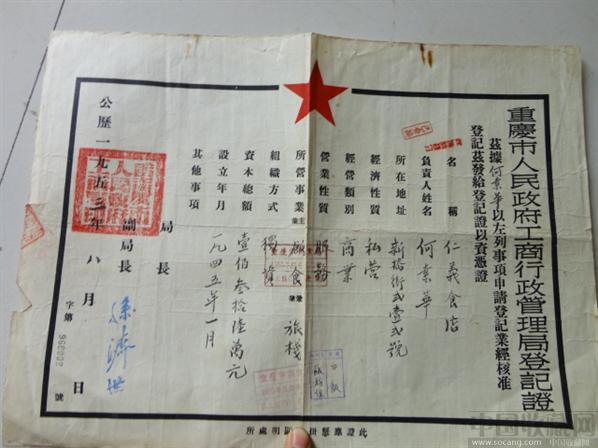 重慶市人民政府工商行政管理局登記證
茲據何素華以左列事項申請登記業經核准
登記茲發給登記證以資憑證
名稱 仁義食店
負責人姓名 何素華
所在地址 新橋街弍壹弍號
經濟性質 私營
經營類別 商業
營業性質 服務
所營事業 主業 飲食 兼業 旅棧
組織方式 獨資
資本總額 壹佰叁拾陸萬元
設立年月 一九四五年一月
其他事項
局長
副局長 孫濟世
公歷一九五三年八月 日
字第 號
此證應懸掛 明處所
中国收藏网
www.socang.com